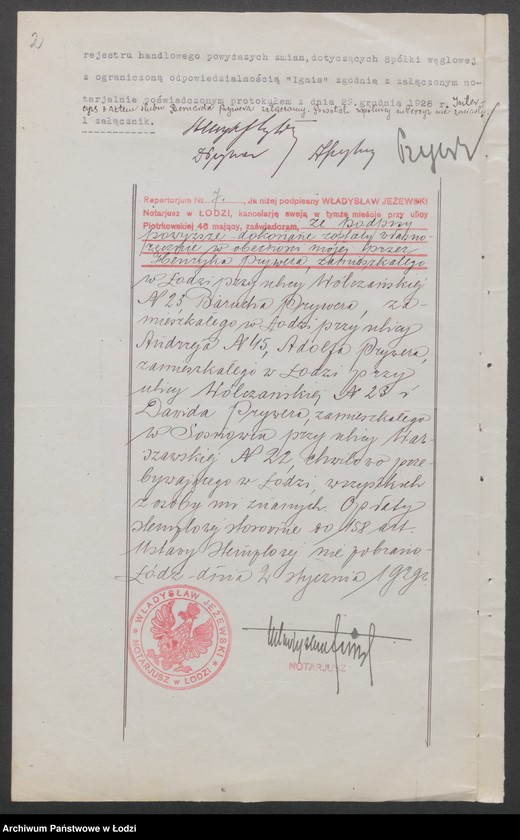 2
rejestru handlowego powyższych zmian, dotyczących Spółki węglowej
z ograniczoną odpowiedzialnością "Ignis" zgodnie z załączonym no-
tarjalnie poświadczonym protokułem z dnia 29 grudnia 1928 r.
1 załącznik.
Repertorjum Nr. 7. Ja niżej podpisany WŁADYSŁAW JEŻEWSKI
Notarjusz w ŁODZI, kancelarję swoją w tymże mieście przy ulicy
Piotrkowskiej 46 mający, zaświadczam, że podpisy
powyższe dokonane zostały własno-
ręcznie w obecności mojej przez
Henryka Prywera, zamieszkałego
w Łodzi przy ulicy Wólczańskiej
N 23 Barucha Prywera, za-
mieszkałego w Łodzi przy ulicy
Andrzeja N 45, Adolfa Prywera,
zamieszkałego w Łodzi przy
ulicy Wólczańskiej N 23 i
Dawida Prywera, zamieszkałego
w Sosnowcu przy ulicy War-
szawskiej N 22, chwilowo prze-
bywającego w Łodzi, wszystkich
z osoby mi znanych. Opłaty
stemplowej stosownie do 158 art.
Ustawy Stemplowej nie pobrano-
Łódź dnia 2 stycznia 1929r.
WŁADYSŁAW JEŻEWSKI
NOTARJUSZ w ŁODZI
NOTARJUSZ
Archiwum Państwowe w Łodzi